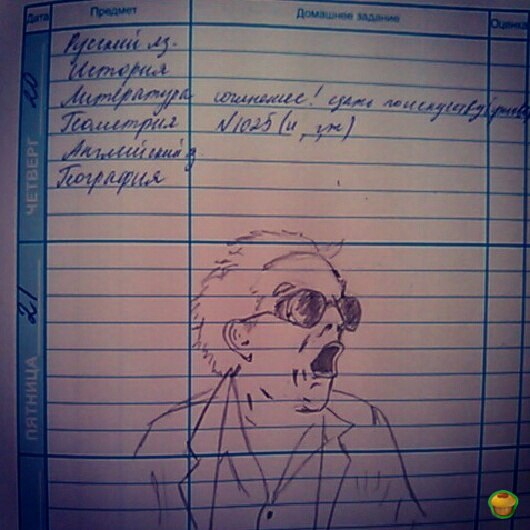 Дата Предмет Домашнее задание Оценка
ЧЕТВЕРГ 20
Русский яз.
История
Литература сочинение! сдать по искусству
Геометрия №1025 (и, ж)
Английский я.
География
ПЯТНИЦА 21